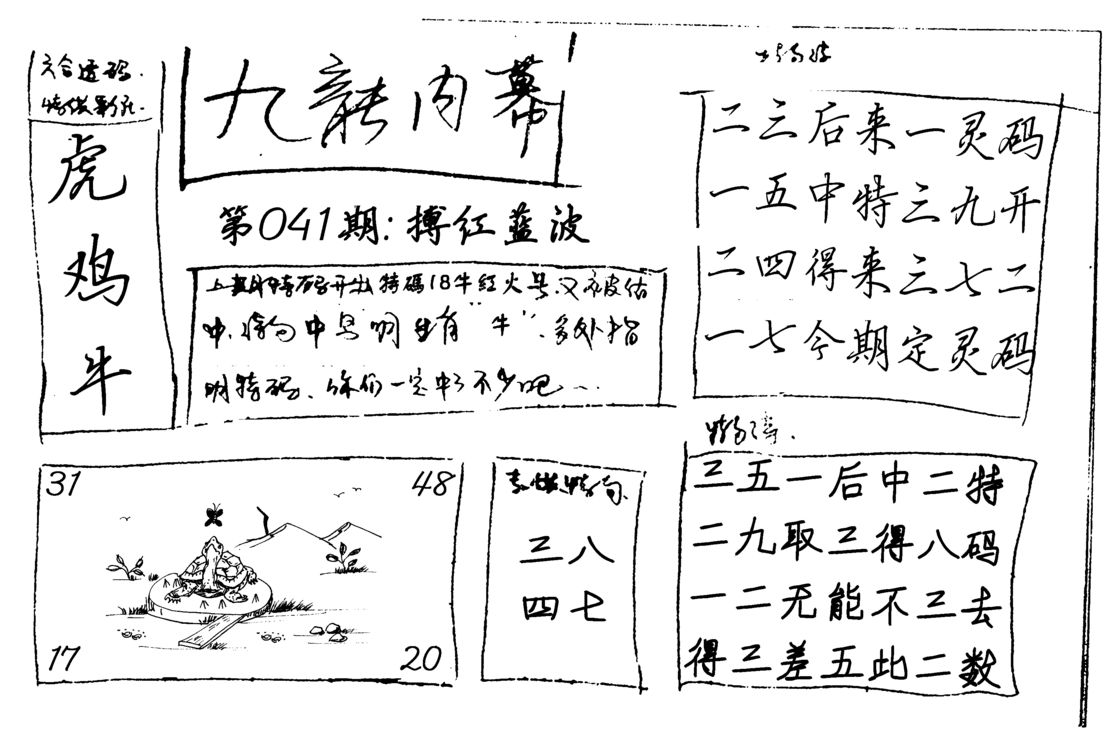 六合透码.
虎
鸡
牛
九龍内幕
第041期:搏红蓝波
开出特碼18牛红火号.又被估
中.中号明里有“牛”.多处指
明特码、你们一定中了不少吧…
二三后来一灵码
一五中特三九开
二四得来三七二
一七今期定灵码
31
48
17
20
三八
四七
三五一后中二特
二九取三得八码
一二无能不三去
得三差五此二数